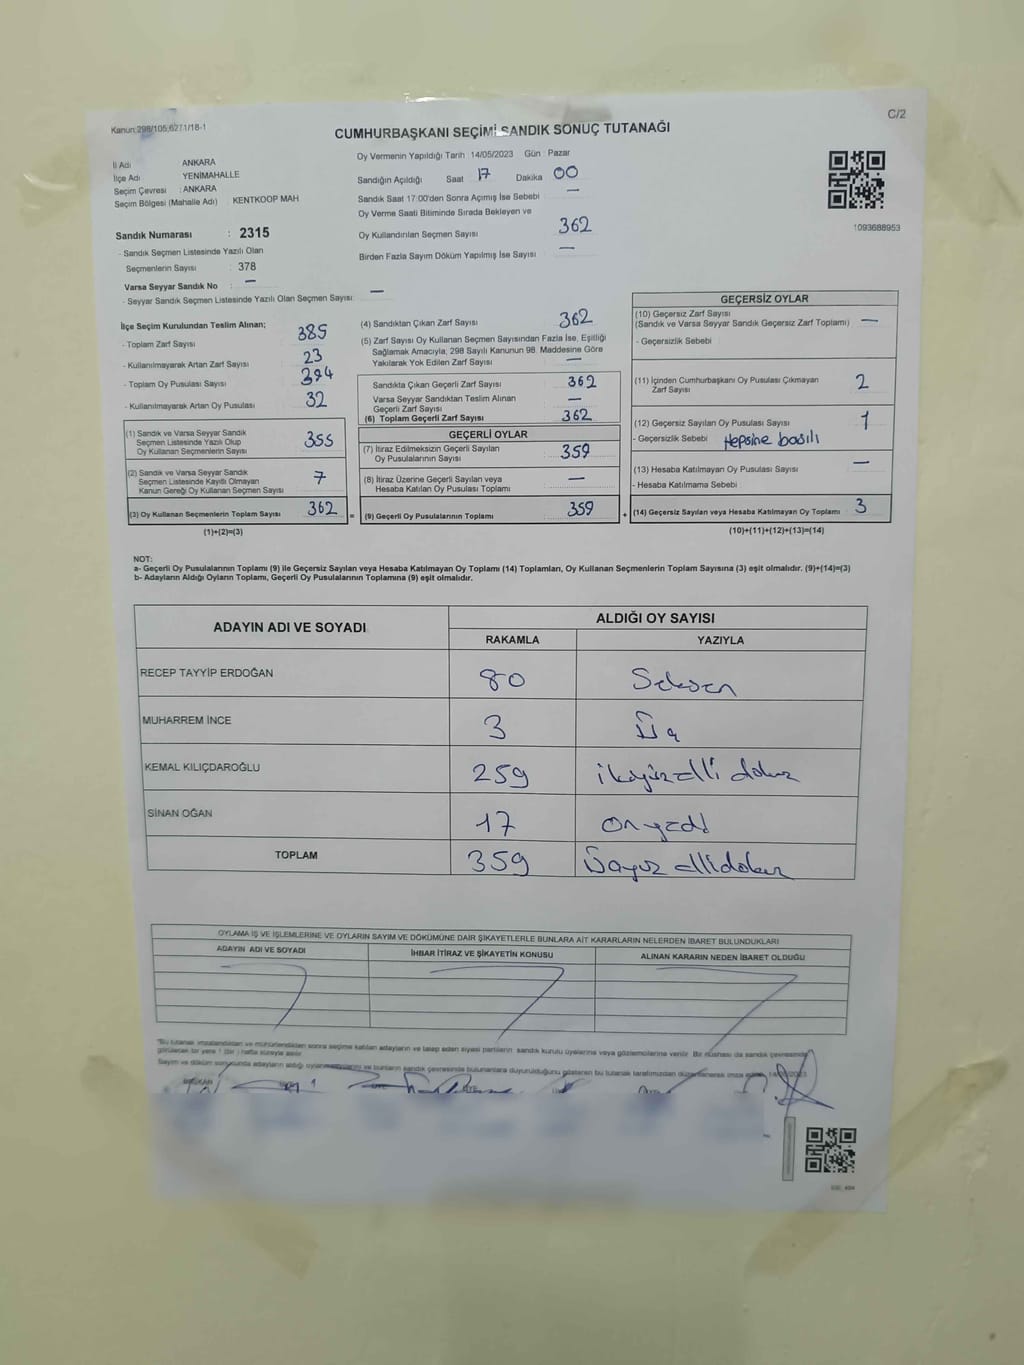 Kanun:298/105,6271/18-1
C/2
CUMHURBAŞKANI SEÇİMİ SANDIK SONUÇ TUTANAĞI
İl Adı ANKARA
İlçe Adı YENİMAHALLE
Seçim Çevresi : ANKARA
Seçim Bölgesi (Mahalle Adı) KENTKOOP MAH
Sandık Numarası : 2315
- Sandık Seçmen Listesinde Yazılı Olan
Seçmenlerin Sayısı : 378
Varsa Seyyar Sandık No : —
- Seyyar Sandık Seçmen Listesinde Yazılı Olan Seçmen Sayısı: —
Oy Vermenin Yapıldığı Tarih : 14/05/2023 Gün : Pazar
Sandığın Açıldığı Saat 17 Dakika 00
Sandık Saat 17:00'den Sonra Açımış İse Sebebi —
Oy Verme Saati Bitiminde Sırada Bekleyen ve
Oy Kullandırılan Seçmen Sayısı 362
Birden Fazla Sayım Döküm Yapılmış İse Sayısı —
1093688953
İlçe Seçim Kurulundan Teslim Alınan;
- Toplam Zarf Sayısı 385
- Kullanılmayarak Artan Zarf Sayısı 23
- Toplam Oy Pusulası Sayısı 394
- Kullanılmayarak Artan Oy Pusulası 32
(1) Sandık ve Varsa Seyyar Sandık
Seçmen Listesinde Yazılı Olup
Oy Kullanan Seçmenlerin Sayısı 355
(2) Sandık ve Varsa Seyyar Sandık
Seçmen Listesinde Kayıtlı Olmayan
Kanun Gereği Oy Kullanan Seçmen Sayısı 7
(3) Oy Kullanan Seçmenlerin Toplam Sayısı 362 =
(1)+(2)=(3)
(4) Sandıktan Çıkan Zarf Sayısı 362
(5) Zarf Sayısı Oy Kullanan Seçmen Sayısından Fazla İse, Eşitliği
Sağlamak Amacıyla; 298 Sayılı Kanunun 98. Maddesine Göre
Yakılarak Yok Edilen Zarf Sayısı —
Sandıkta Çıkan Geçerli Zarf Sayısı 362
Varsa Seyyar Sandıktan Teslim Alınan
Geçerli Zarf Sayısı —
(6) Toplam Geçerli Zarf Sayısı 362
GEÇERLİ OYLAR
(7) İtiraz Edilmeksizin Geçerli Sayılan
Oy Pusulalarının Sayısı 359
(8) İtiraz Üzerine Geçerli Sayılan veya
Hesaba Katılan Oy Pusulası Toplamı —
(9) Geçerli Oy Pusulalarının Toplamı 359 +
GEÇERSİZ OYLAR
(10) Geçersiz Zarf Sayısı
(Sandık ve Varsa Seyyar Sandık Geçersiz Zarf Toplamı) —
- Geçersizlik Sebebi
(11) İçinden Cumhurbaşkanı Oy Pusulası Çıkmayan
Zarf Sayısı 2
(12) Geçersiz Sayılan Oy Pusulası Sayısı 1
- Geçersizlik Sebebi Hepsine basılı
(13) Hesaba Katılmayan Oy Pusulası Sayısı —
- Hesaba Katılmama Sebebi
(14) Geçersiz Sayılan veya Hesaba Katılmayan Oy Toplamı 3
(10)+(11)+(12)+(13)=(14)
NOT:
a- Geçerli Oy Pusulalarının Toplamı (9) ile Geçersiz Sayılan veya Hesaba Katılmayan Oy Toplamı (14) Toplamları, Oy Kullanan Seçmenlerin Toplam Sayısına (3) eşit olmalıdır. (9)+(14)=(3)
b- Adayların Aldığı Oyların Toplamı, Geçerli Oy Pusulalarının Toplamına (9) eşit olmalıdır.
ADAYIN ADI VE SOYADI
ALDIĞI OY SAYISI
RAKAMLA YAZIYLA
RECEP TAYYİP ERDOĞAN 80 Seksen
MUHARREM İNCE 3 Üç
KEMAL KILIÇDAROĞLU 259 ikiyüzelli dokuz
SİNAN OĞAN 17 Onyedi
TOPLAM 359 Üçyüz ellidokuz
OYLAMA İŞ VE İŞLEMLERİNE VE OYLARIN SAYIM VE DÖKÜMÜNE DAİR ŞİKAYETLERLE BUNLARA AİT KARARLARIN NELERDEN İBARET BULUNDUKLARI
ADAYIN ADI VE SOYADI İHBAR İTİRAZ VE ŞİKAYETİN KONUSU ALINAN KARARIN NEDEN İBARET OLDUĞU
"Bu tutanak imzalandıktan ve mühürlendikten sonra seçime katılan adayların ve talep eden siyasi partilerin sandık kurulu üyelerine veya gözlemcilerine verilir. Bir nüshası da sandık çevresinde
görülecek bir yere 1 (bir) hafta süreyle asılır.
Sayım ve döküm sonucunda adayların aldığı oyların ve bunların sandık çevresinde bulunanlara duyurulduğunu gösteren bu tutanak tarafımızdan düzenlenerek imza
BAŞKAN